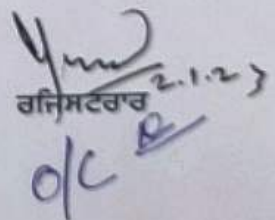 2.1.23
ਰਜਿਸਟਰਾਰ
O/C